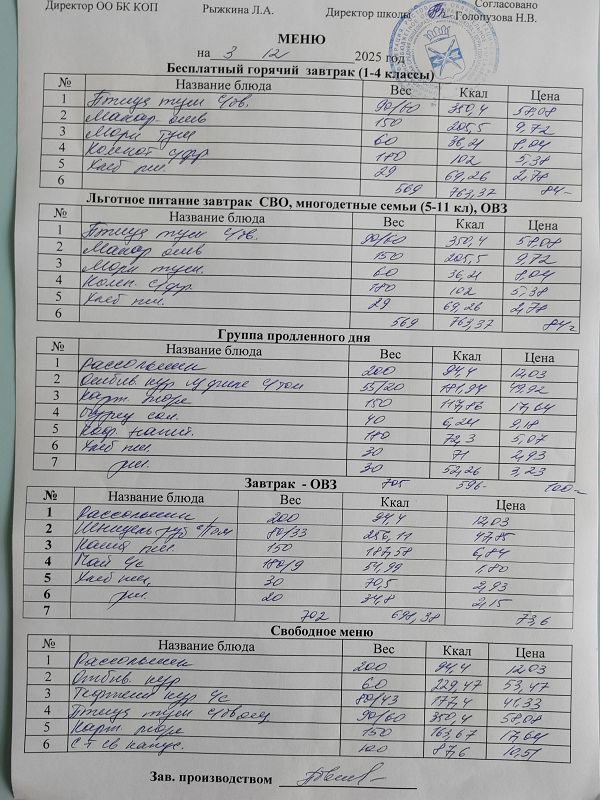 Согласовано
Директор ОО БК КОП Рыжкина Л.А. Директор школы Голопузова Н.В.
МЕНЮ
на 3 12 2025 год
Бесплатный горячий завтрак (1-4 классы)
№ Название блюда Вес Ккал Цена
1 Птица туш с/ов. 90/60 350,4 58,08
2 Макар. отв 150 205,5 9,72
3 Морк туш 60 36,21 8,04
4 Компот с/фр 180 102 5,38
5 Хлеб пш. 29 69,26 2,78
6 569 763,37 84-
Льготное питание завтрак СВО, многодетные семьи (5-11 кл), ОВЗ
№ Название блюда Вес Ккал Цена
1 Птица туш с/ов. 90/60 350,4 58,08
2 Макар отв 150 205,5 9,72
3 Морк туш. 60 36,21 8,04
4 Комп. с/фр 180 102 5,38
5 Хлеб пш 29 69,26 2,78
6 569 763,37 84
Группа продленного дня
Название блюда Вес Ккал Цена
1 Рассольник 200 94,4 12,03
2 кур с/том 55/20 181,94 49,92
3 Карт. пюре 150 117,86 17,64
4 сол. 40 6,24 9,18
5 Коф. напит. 180 72,3 5,07
6 Хлеб пш. 30 71 2,93
7 рж. 30 52,26 3,23
705 596- 100-
Завтрак - ОВЗ
№ Название блюда Вес Ккал Цена
1 Рассольник 200 94,4 12,03
2 Шницель руб с/том 80/33 250,11 47,85
3 Каша пш. 150 187,58 6,84
4 Чай с/с 180/9 54,99 1,80
5 Хлеб пш, 30 70,5 2,93
6 рж. 20 34,8 2,15
7 702 698,38 73,6
Свободное меню
№ Название блюда Вес Ккал Цена
1 Рассольник 200 94,4 12,03
2 Отбив. кур 60 229,47 53,47
3 кур с/с 80/43 177,4 41,33
4 Птица туш с/овощ 90/60 350,4 58,08
5 Карт. пюре 150 163,67 17,64
6 С-т св капус. 100 87,6 10,51
Зав. производством